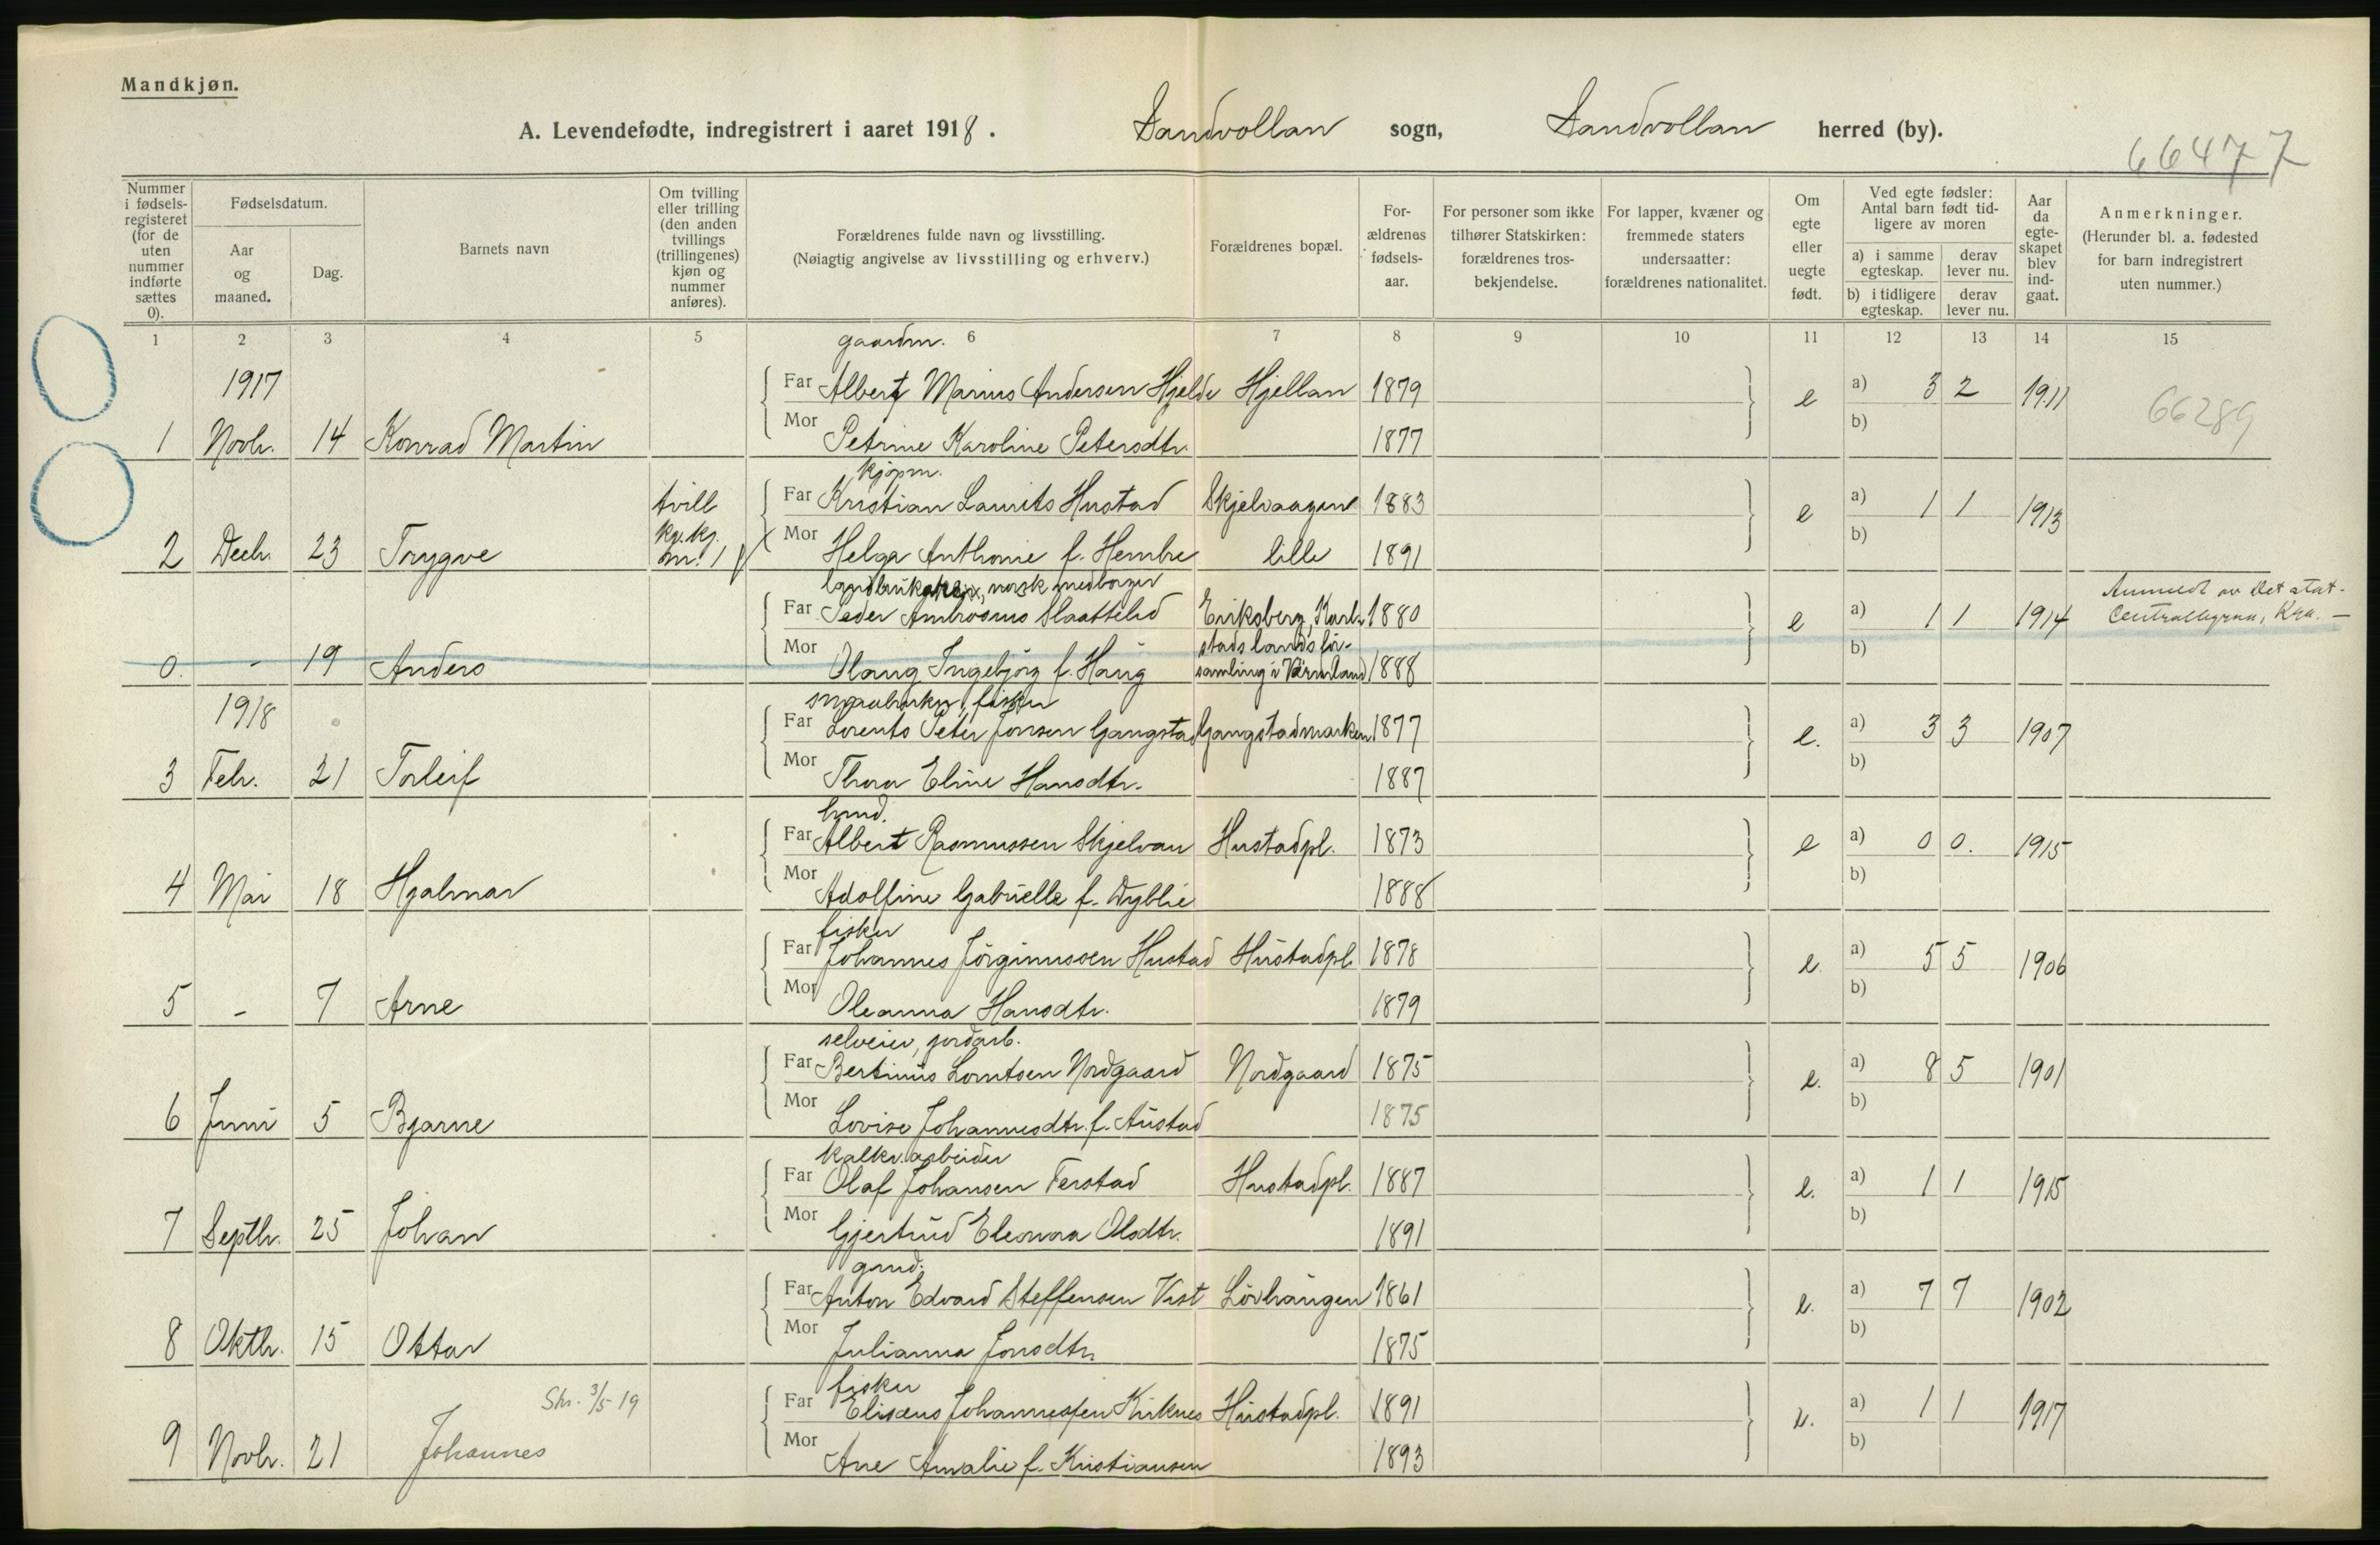 Mandkjøn.
A. Levendefødte, indregistrert i aaret 1918. Sandvollan sogn, Sandvollan herred (by).
66477
Nummer i fødsels-registeret (for de uten nummer indførte sættes 0).
Fødselsdatum.
Aar og maaned.
Dag.
Barnets navn
Om tvilling eller trilling (den anden tvillings (trillingenes) kjøn og nummer anføres).
Forældrenes fulde navn og livsstilling.
(Nøiagtig angivelse av livsstilling og erhverv.)
Forældrenes bopæl.
For-ældrenes fødsels-aar.
For personer som ikke tilhører Statskirken: forældrenes tros-bekjendelse.
For lapper, kvæner og fremmede staters undersaatter: forældrenes nationalitet.
Om egte eller uegte født.
Ved egte fødsler: Antal barn født tid-ligere av moren
a) i samme egteskap. derav lever nu.
b) i tidligere egteskap. derav lever nu.
Aar da egte-skapet blev ind-gaat.
Anmerkninger.
(Herunder bl. a. fødested for barn indregistrert uten nummer.)
1 2 3 4 5 6 7 8 9 10 11 12 13 14 15
gaardm.
1917 Far Albert Marius Andersen Hjelde Hjellan 1879 e a) 3 2 1911 66289
1 Novbr. 14 Konrad Martin Mor Petrine Karoline Petersdtr. 1877 b)
kjøpm.
tvill Far Kristian Laurits Hustad Skjelvaagen 1883 e a) 1 1 1913
kv.kj.
2 Decbr. 23 Trygve nr. 1 Mor Helga Anthonie f. Hembre lille 1891 b)
norsk medborger
Far Peder Ambrosius Slaattelid Eriksberg, Karl- 1880 e a) 1 1 1914 Anmeldt av Det stat. Centralbyraa, Kra. —
stads landsför-
0. - 19 Anders Mor Olaug Ingebjørg f. Haug samling i Värmland 1888 b)
smaabruker, fisker
1918 Far Lorents Peter Jonsen Gangstad Gangstadmarken 1877 e. a) 3 3 1907
3 Febr. 21 Torleif Mor Thora Eline Hansdtr. 1887 b)
brmd.
Far Albert Rasmussen Skjelvan Hustadpl. 1873 e a) 0 0. 1915
4 Mai 18 Hjalmar Mor Adolfine Gabrielle f. Dyblie 1888 b)
fisker
Far Johannes Jørginussen Hustad Hustadpl 1878 e. a) 5 5 1906
5 - 7 Arne Mor Oleanna Hansdtr. 1879 b)
selveier, jordarb.
Far Bertinus Lorntsen Nordgaard Nordgaard 1875 e. a) 8 5 1901
6 Juni 5 Bjarne Mor Lovise Johannesdtr. f. Austad 1875 b)
kalkv.arbeider
Far Olaf Johansen Ferstad Hustadpl. 1887 e. a) 1 1 1915
7 Septbr. 25 Johan Mor Gjertrud Eleonora Olsdtr. 1891 b)
gmd.
Far Anton Edvard Steffensen Vist Lövhaugen 1861 e. a) 7 7 1902
8 Oktbr. 15 Ottar Mor Julianna Jonsdtr. 1875 b)
fisker
Skr. 3/5-19 Far Elisæus Johannessen Kirknes Hustadpl. 1891 e. a) 1 1 1917
9 Novbr. 21 Johannes Mor Ane Amalie f. Kristiansen 1893 b)